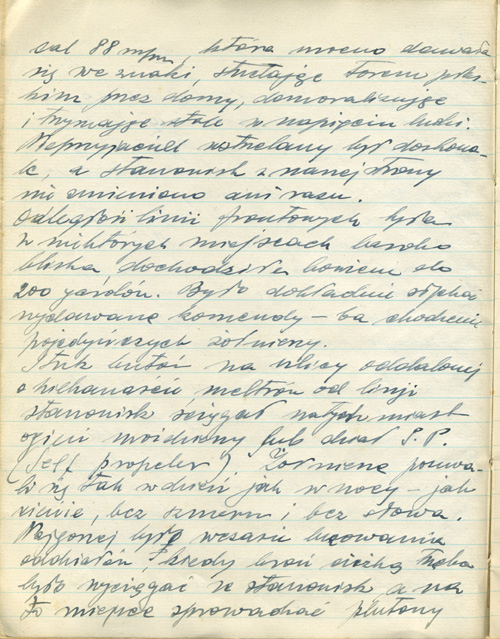 dał 88 m/m, która mocno dawała
się we znaki, strzelając torem płas-
kim przez domy, demoralizując
i trzymając stale w napięciu ludzi.
Nieprzyjaciel wstrzelany był doskona-
le, a stanowisk z naszej strony
nie zmieniono ani razu.
Odległość linii frontowych była
w niektórych miejscach bardzo
bliska, dochodziła bowiem do
200 yardów. Było dokładnie słychać
wydawane komendy – ba chodzenie
pojedyńczych żołnierzy.
Stuk butów na ulicy oddalonej
o kilkanaście metrów od linji
stanowisk ściągał natychmiast
ogień moździerzy lub dział S.P.
(Self propeler). Żołnierze porusza-
li się tak w dzień jak w nocy – jak
cienie, bez szmeru i bez słowa.
Najgorzej było w czasie luzowania
oddziałów, kiedy broń ciężką trzeba
było wyciągać ze stanowisk, a na
to miejsce sprowadzać plutony